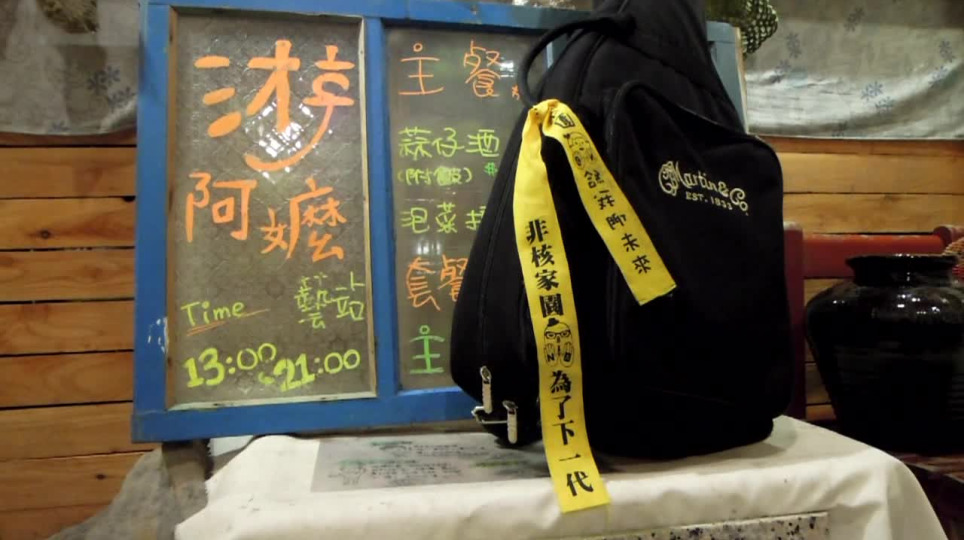 游
阿嬤
藝站
Time
13:00~21:00
主餐
蒜仔酒
(附飯) $
泡菜
套餐
主
非核家園
NO
為了下一代
未來
Martin & Co.
EST. 1833